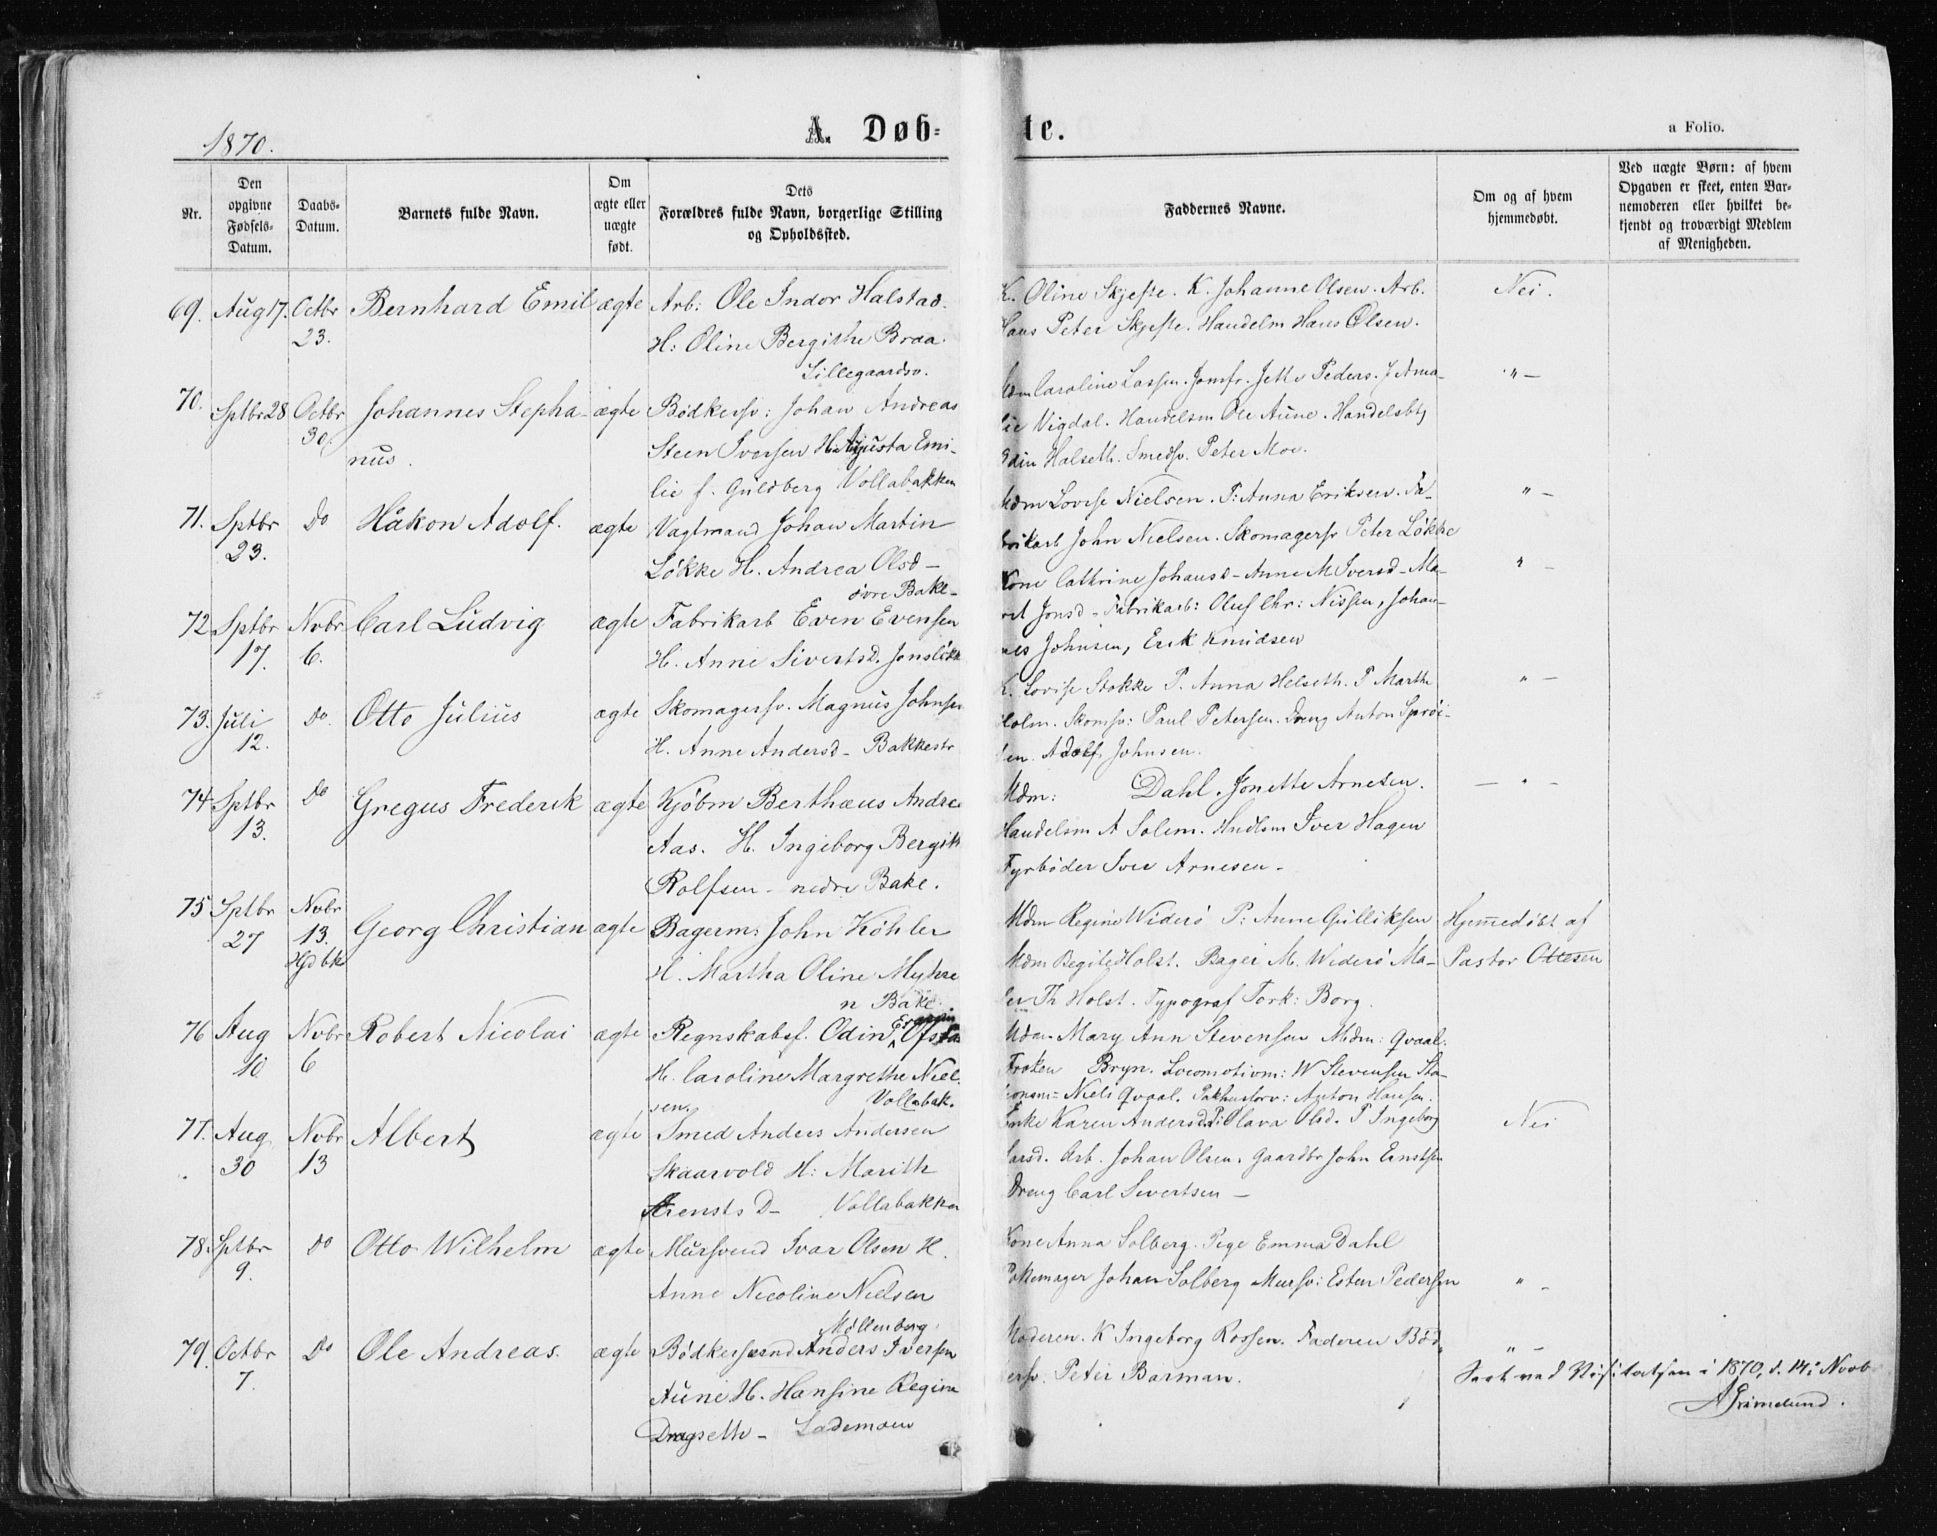 1870.
A. Døb-
te.
a Folio.
Nr.
Den
opgivne
Fødsels-
Datum.
Daabs-
Datum.
Barnets fulde Navn.
Om
ægte eller
uægte
født.
Dets
Forældres fulde Navn, borgerlige Stilling
og Opholdssted.
Faddernes Navne.
Om og af hvem
hjemmedøbt.
Ved uægte Børn: af hvem
Opgaven er skeet, enten Bar-
nemoderen eller hvilket be-
kjendt og troværdigt Medlem
af Menigheden.
69. Aug 17. Octbr 23. Bernhard Emil ægte
Arb: Ole Indor Halstad.
H: Oline Bergithe Braa.
Lillegaardsv.
K. Oline Skjefte. K. Johanne Olsen. Arb.
Hans Peter Skjefte. Handelm Hans Olsen.
Nei.
70. Sptbr 28 Octbr 30 Johannes Stepha-
nus. ægte
Bødkersv: Johan Andreas
Steen Iversen H. Augusta Emi-
lie f. Guldberg Vollabakken
Mdm Caroline Lassen. Jomfr. Jette Peders. J Ama-
lie Vigdal. Handelsm Ole Aune. Handelsbtj
Odin Halseth. Smedsv. Peter Moe.
" –
71. Sptbr 23. Do Håkon Adolf. ægte
Vagtmand Johan Martin
Løkke H. Andrea Olsd –
øvre Bakl–
Mdm Lovise Nielsen. P: Anna Eriksen. Fa-
brikarb John Nielsen. Skomagersv Peter Løkke
" –
72 Sptbr 17. Novbr 6. Carl Ludvig ægte
Fabrikarb Even Evensen
H. Anne Sivertsd.
Kone Cathrine Johansd – Anne M Iversd – Ma-
rit Jonsd – Fabrikarb: Oluf Chr: Nissen, Johan-
nes Johnsen, Erik Knudsen
" –
73. Juli 12. Do. Otto Julius ægte
Skomagersv. Magnus Johnsen
H. Anne Andersd – Bakkestr
K. Lovise Stokke P. Anna Helseth. P Marthe
Holm. Skomsv: Paul Petersen. Dreng Anton
Adolf Johnsen.
" –
74 Sptbr 13. Do Gregus Frederik ægte
Kjøbm Berthæus Andreas
Aas. H. Ingeborg Bergith
Rolfsen – nedre Bakl.
Mdm: Dahl. Jonette Arnesen.
Handelsm A Solem. Hndlsm Iver Hagen
Fyrbøder Iver Arnesen –
– " –
75 Sptbr 27 Novbr 13. Hjdbt Georg Christian ægte
Bagerm: John Köhler
H. Martha Oline
n Bakl.
Mdm Regine Widerø P: Anne Gulliksen
Mdm Begite Holst. Bager M. Widerø Ma-
ler Th Holst. Typograf Tork: Borg.
Hjemmedøbt af
Pastor Ottesen
76 Aug 10 Novbr 6 Robert Nicolai ægte
Regnskabsf. Odin
H. Caroline Margrethe Niel-
sen. Vollabak.
Mdm Mary Ann Stevensen Mdm: Qvaal.
Frøken Bryn. Locomotivm: W Stevensen Sta-
tionsm= Niels Qvaal. Pakhusforv: Anton Hansen.
77. Aug 30 Novbr 13 Albert ægte
Smed Anders Andersen
Skaarvold H: Marith
Arensts D – Vollabakken
Enke Karen Andersd. P: Olava Olsd. P Ingeborg
Larsd. Arb. Johan Olsen. Gaardbr John Ernstsen
Dreng Carl Sivertsen –
Nei
78. Sptbr 9. Do Otto Wilhelm ægte
Mursvend Ivar Olsen H.
Anne Nicoline Nielsen
Møllenberg.
Kone Anna Solberg. Pige Emma Dahl
Johan Solberg Mursv: Esten Pedersen
" –
79. Octbr 7. Do Ole Andreas. ægte
Bødkersvend Anders Iversen
Aune H. Hansine Regine
Dragseth – Lademoen
Moderen. K Ingeborg Rossen. Faderen Bød-
kersv. Peter Barman.
" –
Seet ved Visitatsen i 1870, d. 14: Novb
AGrimelund.